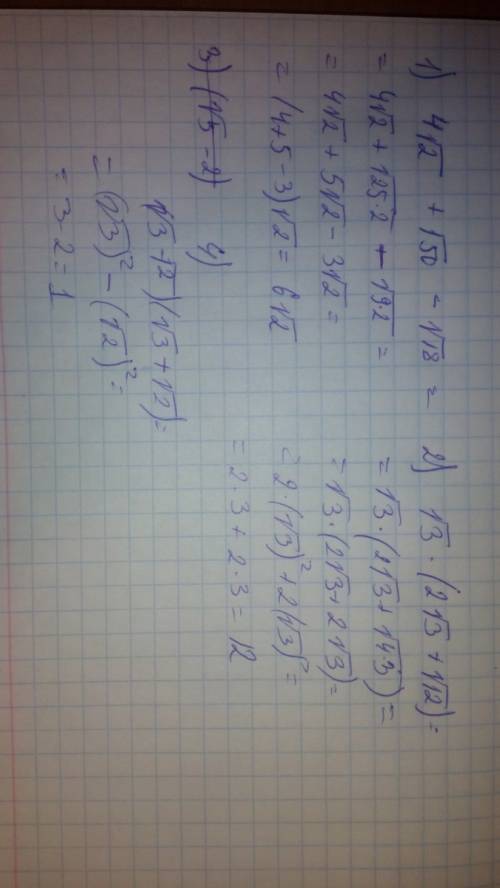 1) 4√2 + √50 - √18 =
= 4√2 + √25·2 - √9·2 =
= 4√2 + 5√2 - 3√2 =
= (4+5-3)√2 = 6√2
2) √3 · (2√3 + √12) =
= √3 · (2√3 + √4·3) =
= √3 · (2√3 + 2√3) =
= 2·(√3)² + 2(√3)² =
= 2·3 + 2·3 = 12
3) (√5 - 2)
4)
√3 + √2)(√3 + √2) =
= (√3)² - (√2)² =
= 3-2 = 1